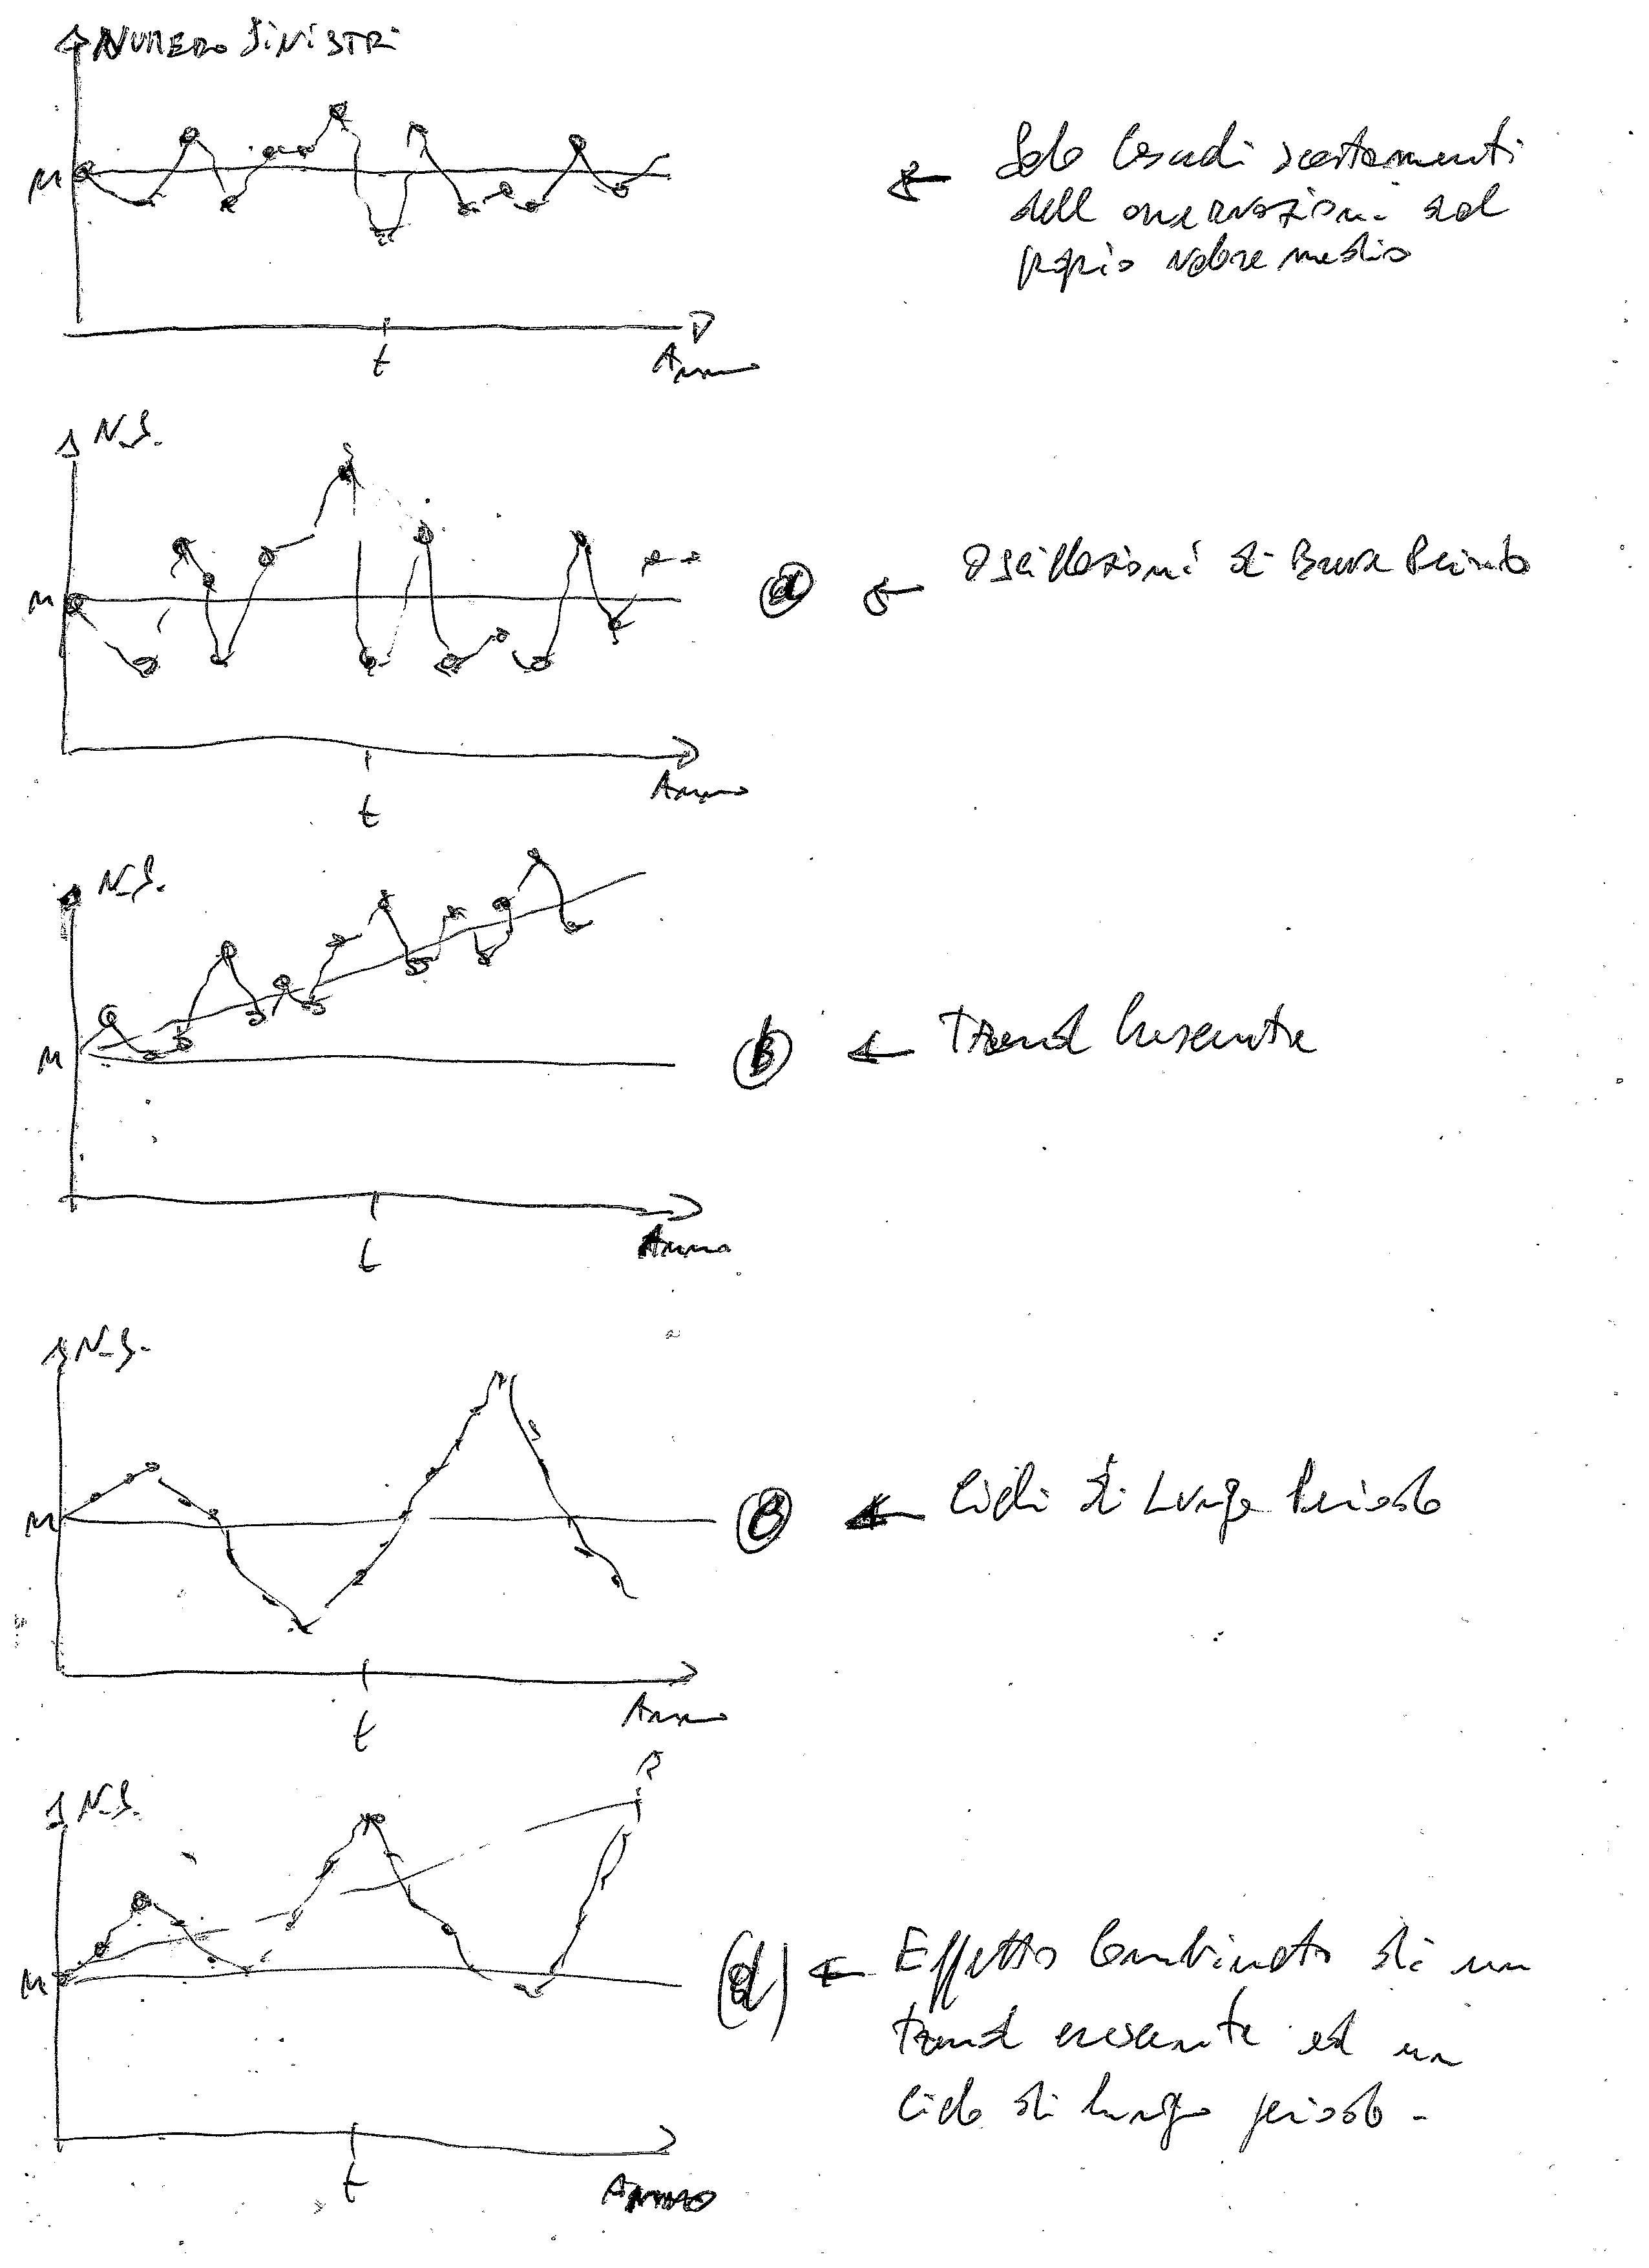 NUMERO SINISTRI
M
Solo casuali scostamenti
dell osservazioni dal
proprio valore medio
t
Anno
N.S.
M
(a)
Oscillazioni di Breve Periodo
t
Anno
N.S.
M
(b)
Trend Crescente
t
Anno
N.S.
M
(c)
Cicli di Lungo Periodo
t
Anno
N.S.
M
(d)
Effetto Combinato di un
trend crescente ed un
ciclo di lungo periodo.
t
Anno